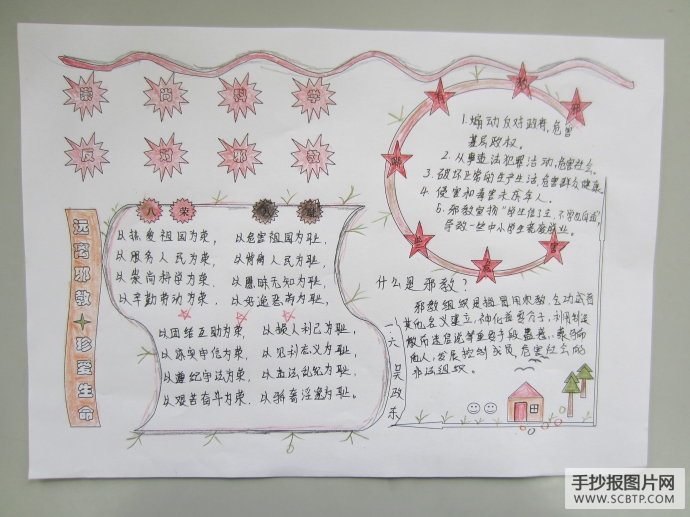 崇尚科学
反对邪教
远离邪教 珍爱生命
八荣
八耻
以热爱祖国为荣,以危害祖国为耻,
以服务人民为荣,以背离人民为耻,
以崇尚科学为荣,以愚昧无知为耻,
以辛勤劳动为荣,以好逸恶劳为耻,
以团结互助为荣,以损人利己为耻,
以诚实守信为荣,以见利忘义为耻,
以遵纪守法为荣,以违法乱纪为耻,
以艰苦奋斗为荣,以骄奢淫逸为耻。
1.煽动反对政府,危害
基层政权。
2.从事违法犯罪活动,危害社会。
3.破坏正常的生产生活,危害群众健康
4.侵害和毒害未成年人。
5.邪教宣扬"学生信了主,不学也自成"
导致一些中小学生荒废学业。
什么是邪教?
邪教组织是指冒用宗教、气功或者
其他名义建立,神化首要分子,利用制造
散布迷信邪说等手段蛊惑、蒙骗
他人,发展控制成员,危害社会的
非法组织。
一六 吴政乐
手抄报图片网
WWW.SCBTP.COM